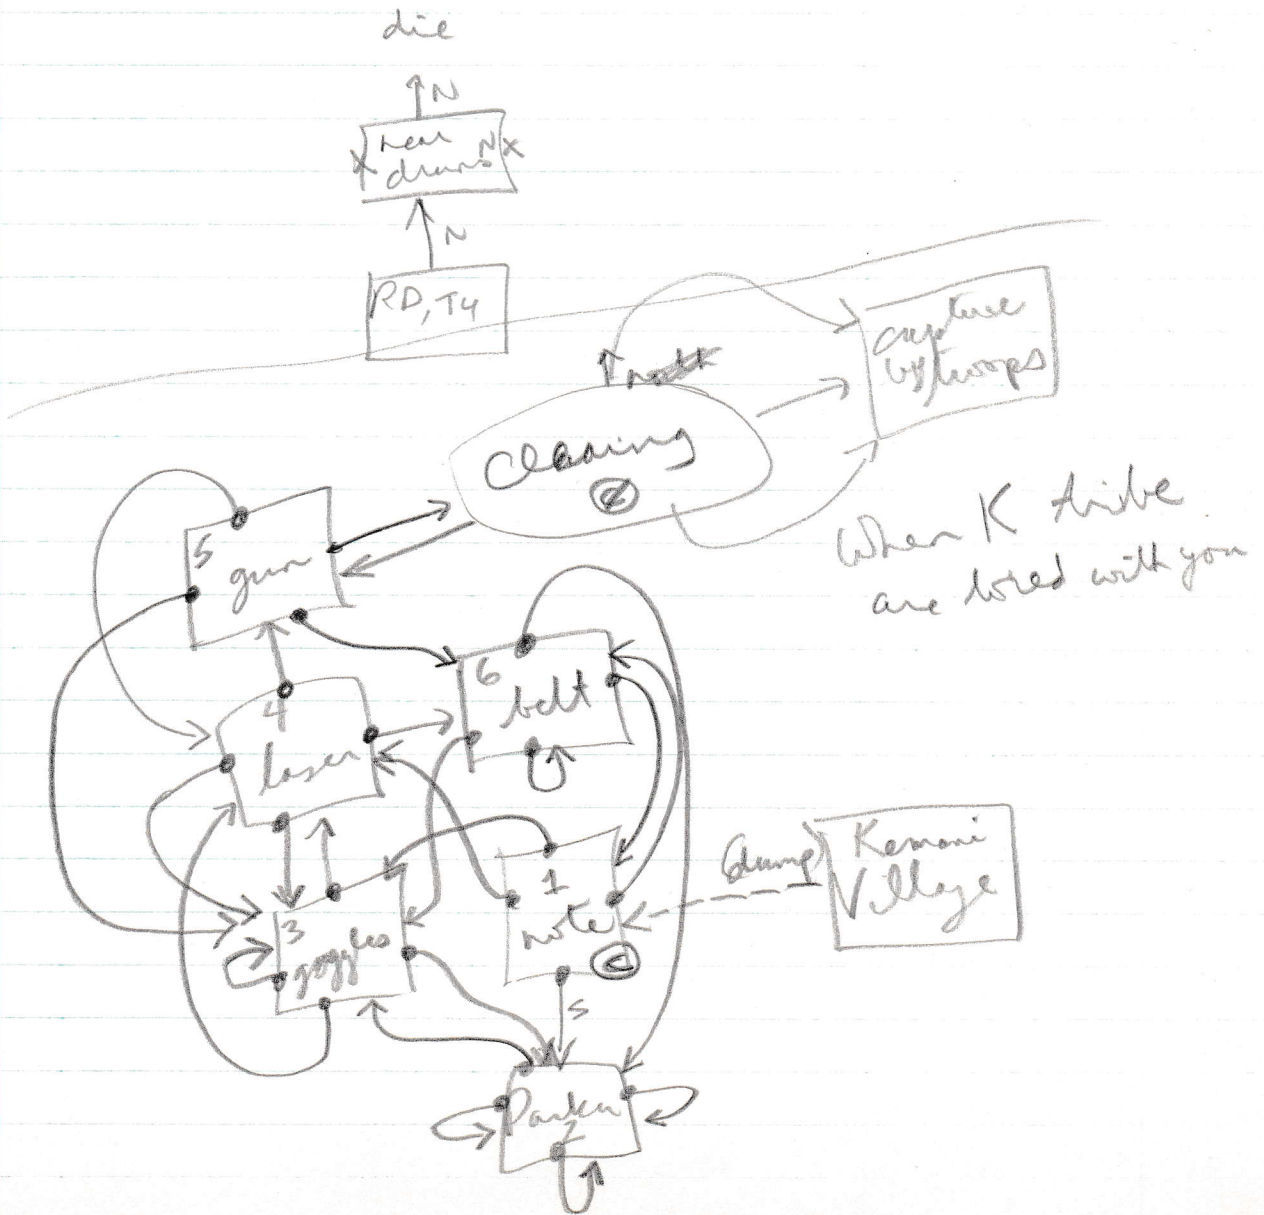 die
N
near N
drums
X X
N
RD, T4
capture
by troops
north
Clearing
When K tribe
are bored with you
5
gun
6
belt
4
laser
(dump)
Kemani
Village
1
note
C
3
goggles
S
Parka
2